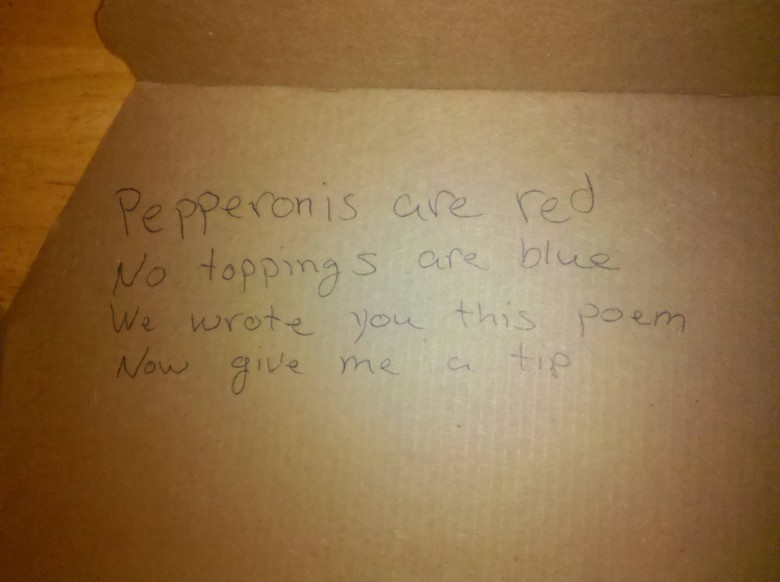 Pepperonis are red
No toppings are blue
We wrote you this poem
Now give me a tip